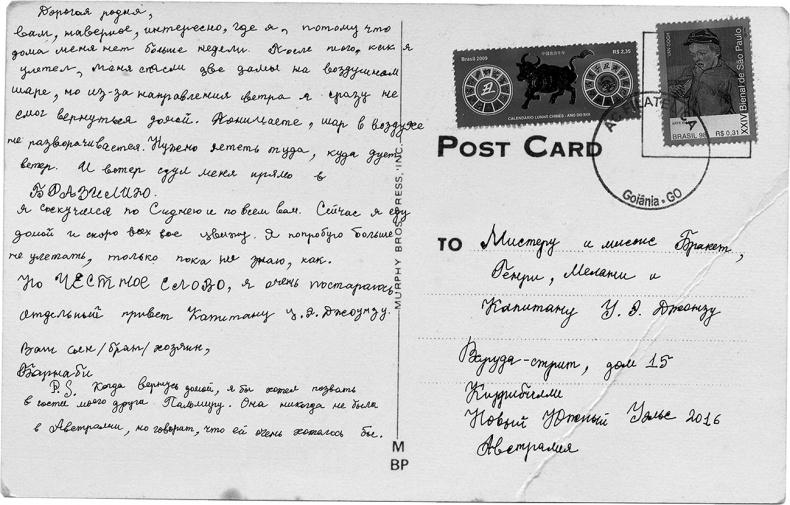 Дорогая родня,
вам, наверное, интересно, где я, потому что
дома меня нет больше недели. После того, как я
улетел, меня спасли две дамы на воздушном
шаре, но из-за направления ветра я сразу не
смог вернуться домой. Понимаете, шар в воздухе
не разворачивается. Нужно лететь туда, куда дует
ветер. И ветер сдул меня прямо в
БРАЗИЛИЮ.
Я соскучился по Сиднею и по всем вам. Сейчас я еду
домой и скоро всех вас увижу. Я попробую больше
не улетать, только пока не знаю, как.
Но ЧЕСТНОЕ СЛОВО, я очень постараюсь
Отдельный привет Капитану У. Э. Джоунзу.
Ваш сын/брат/хозяин,
Барнаби
P.S. Когда вернусь домой, я бы хотел позвать
в гости моего друга Пальмиру. Она никогда не была
в Австралии, но говорит, что ей очень хотелось бы.
MURPHY BROS. PRESS, INC.
M
BP
Brasil 2009
中国農历牛年
R$ 2,35
CALENDÁRIO LUNAR CHINÊS - ANO DO BOI
XXIV Bienal de São Paulo
BRASIL 98 R$ 0,31
Goiânia - GO
POST CARD
TO Мистеру и миссис Бракет,
Генри, Мелани и
Капитану У. Э. Джонзу
Вэруда-стрит, дом 15
Киррибилли
Новый Южный Уэльс 2016
Австралия